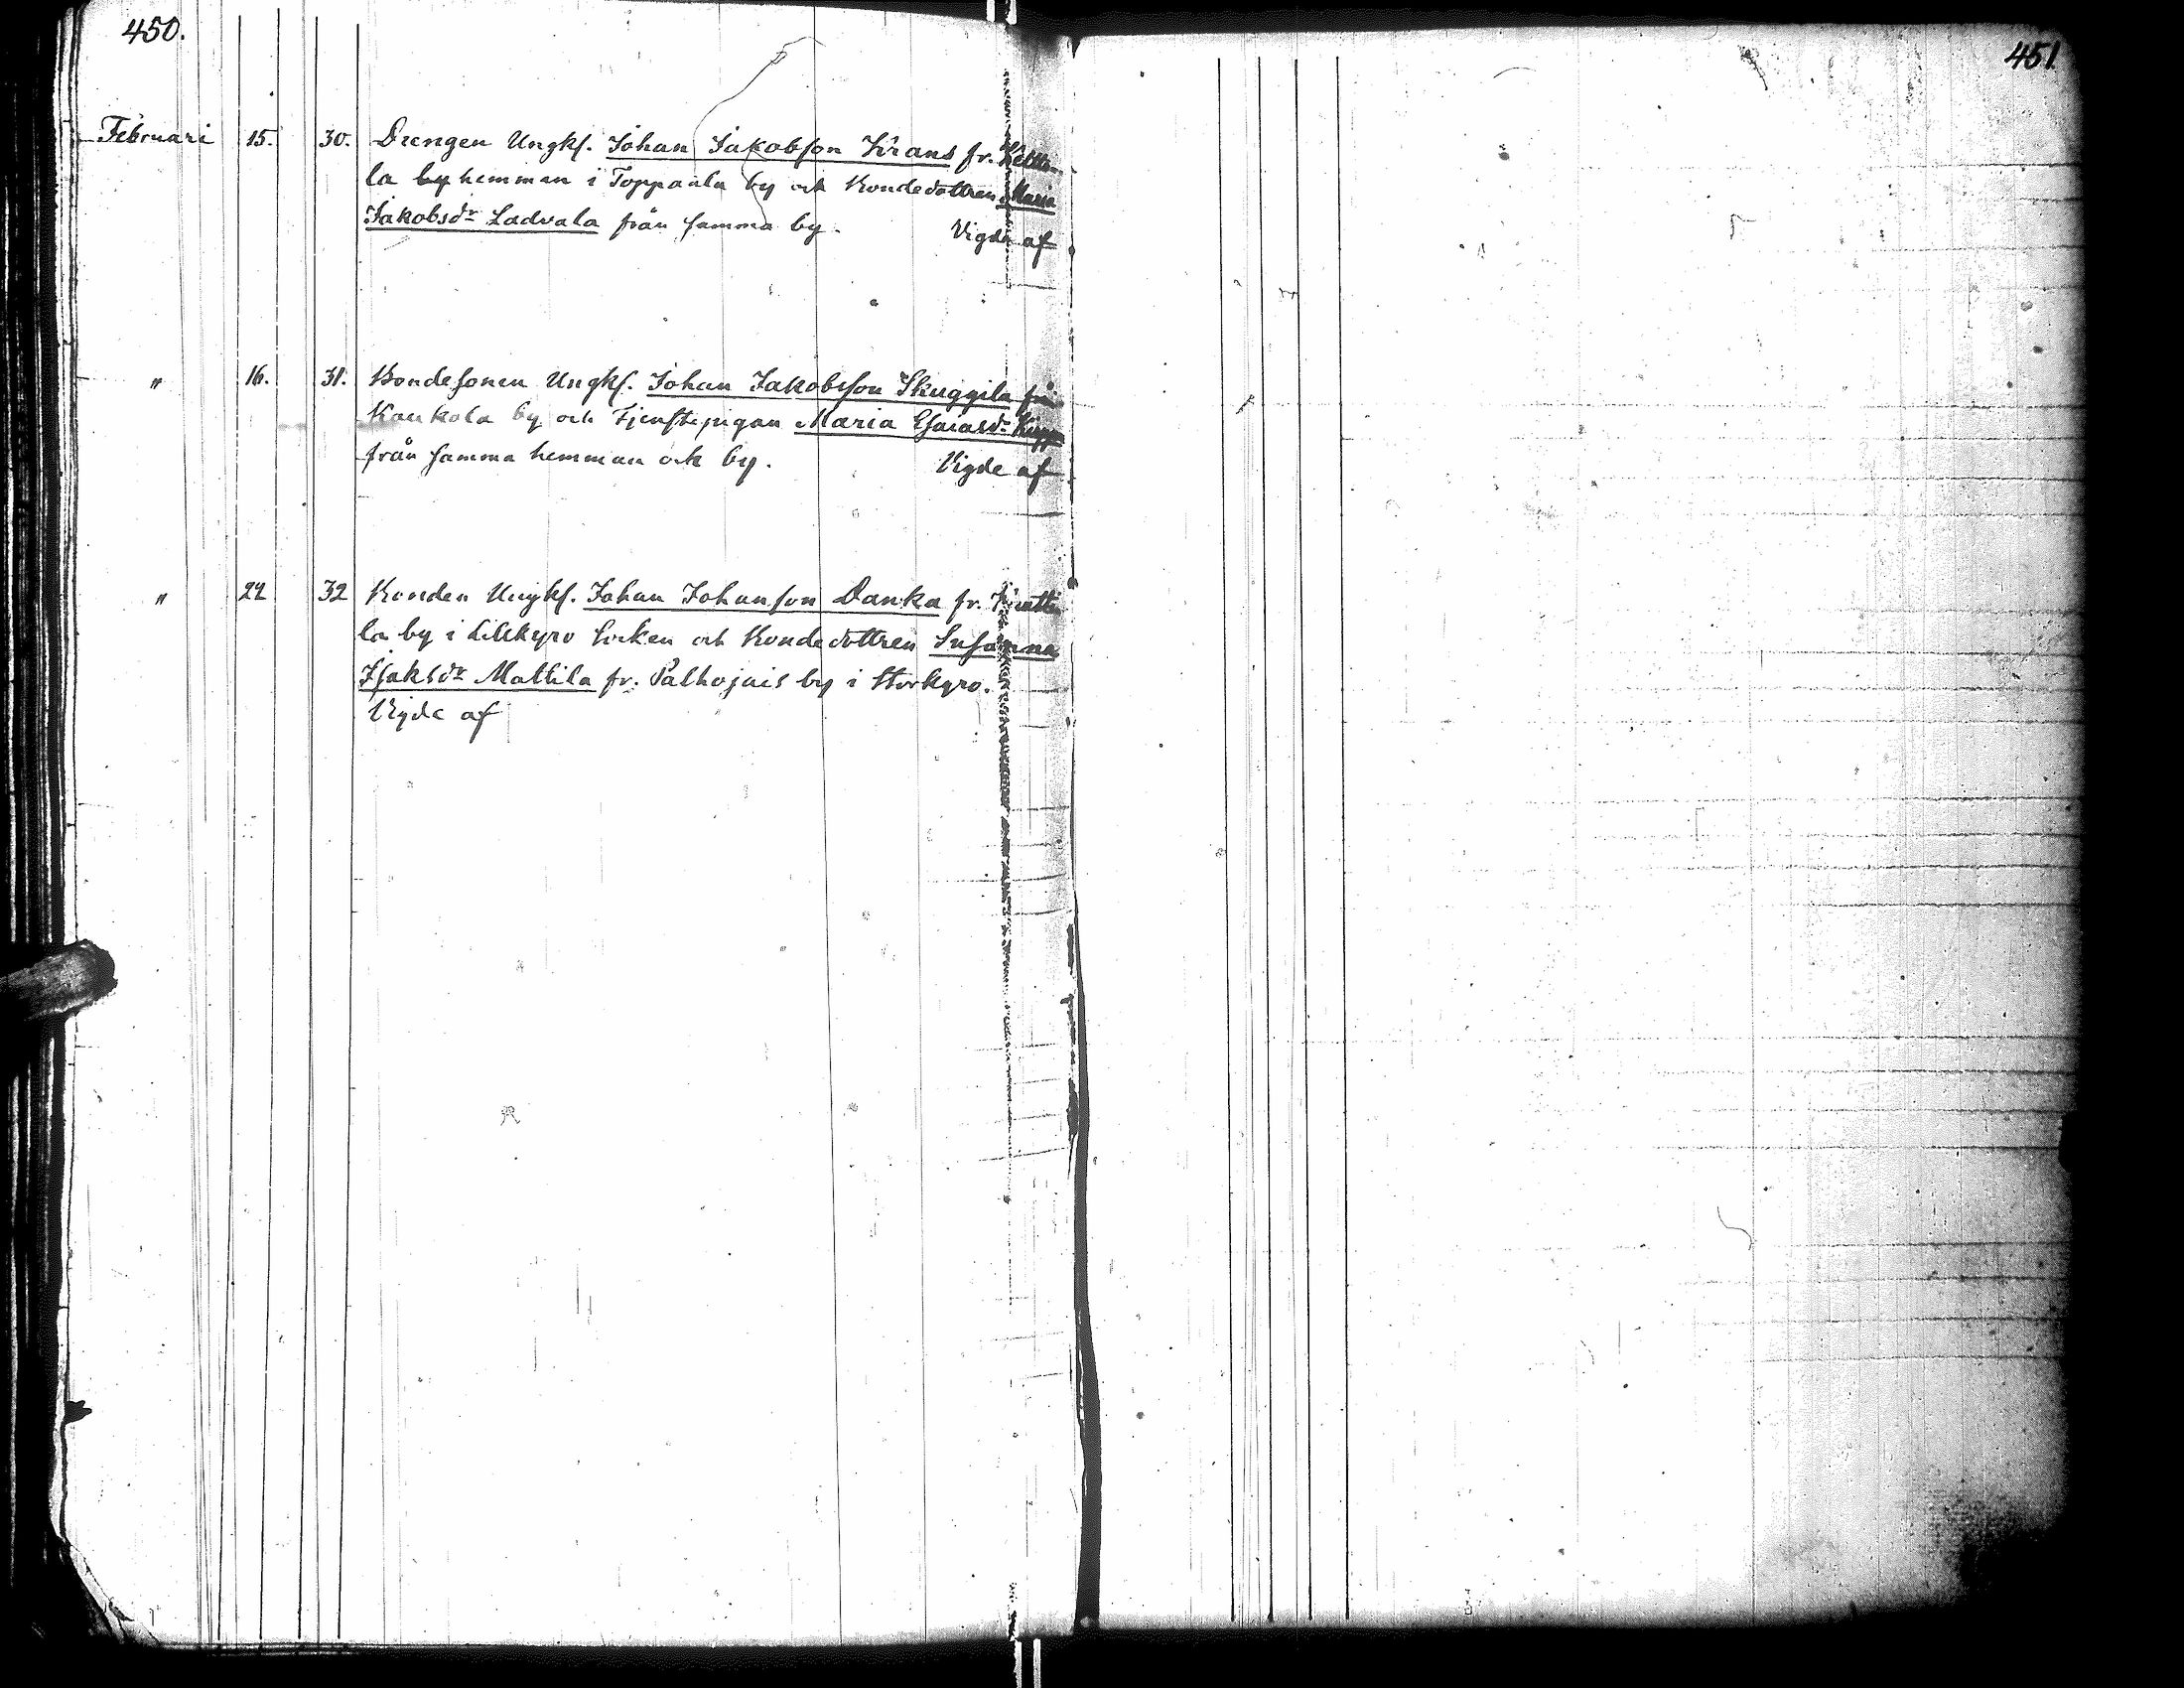 450.
451
Februari 15. 30. Drengen Ungk. Johan Jakobson Sirans fr.
la by hemman i Toppaala by och Bondedottren Maria
Jakobsdr Ladvala från samma by. Vigde af
" 16. 31. Bondesonen Ungk. Johan Jakobsson Skuggila från
Kaukola by och Tjenstepigan Maria Esaiasdr
från samma hemman och by. Vigde af
" 22 32 Bonden Ungk. Johan Johanson Danka fr.
la by i Lillkyro Socken och Bondedottren Susanna
Isaksdr Mattila fr. Palhojais by i Storkyro.
Vigde af